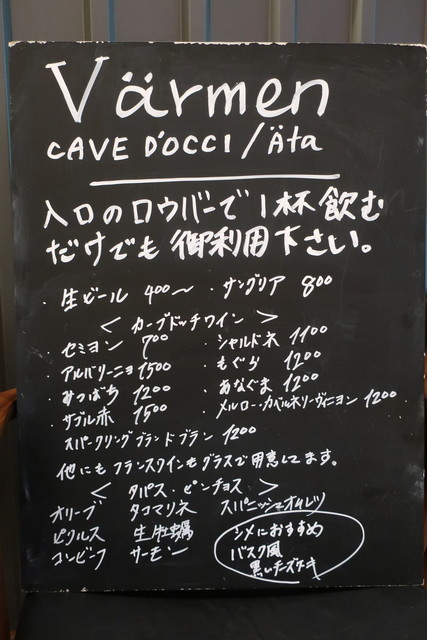 Värmen
CAVE D'OCCI / Äta
入口のロウバーで1杯飲む
だけでも御利用下さい。
・生ビール 400〜 ・サングリア 800
<カーブドッチワイン>
・セミヨン 700 ・シャルドネ 1100
・アルバリーニョ 1500 ・もぐら 1200
・みつばち 1200 ・あなぐま 1200
・サブル赤 1500 ・メルロー・カベルネソーヴィニヨン 1200
スパークリングブランドブラン 1200
他にもフランスワインもグラスで用意してます。
<タパス・ピンチョス>
オリーブ タコマリネ スパニッシュオムレツ
ピクルス 生牡蠣
コンビーフ サーモン
シメにおすすめ
バスク風
黒いチーズケーキ